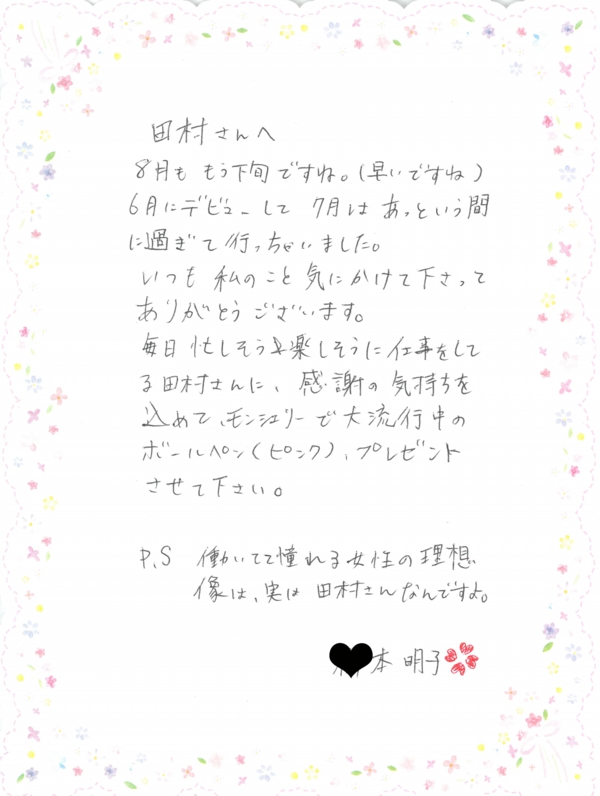 田村さんへ
8月も もう下旬ですね。(早いですね)
6月にデビューして 7月は あっという間
に過ぎて行っちゃいました。
いつも 私のこと 気にかけて下さって
ありがとうございます。
毎日 忙しそう&楽しそうに仕事をして
る田村さんに、感謝の気持ちを
込めて、モンシェリーで大流行中の
ボールペン(ピンク)、プレゼント
させて下さい。
P.S 働いてて憧れる女性の理想
像は、実は 田村さんなんですよ。
本 明子